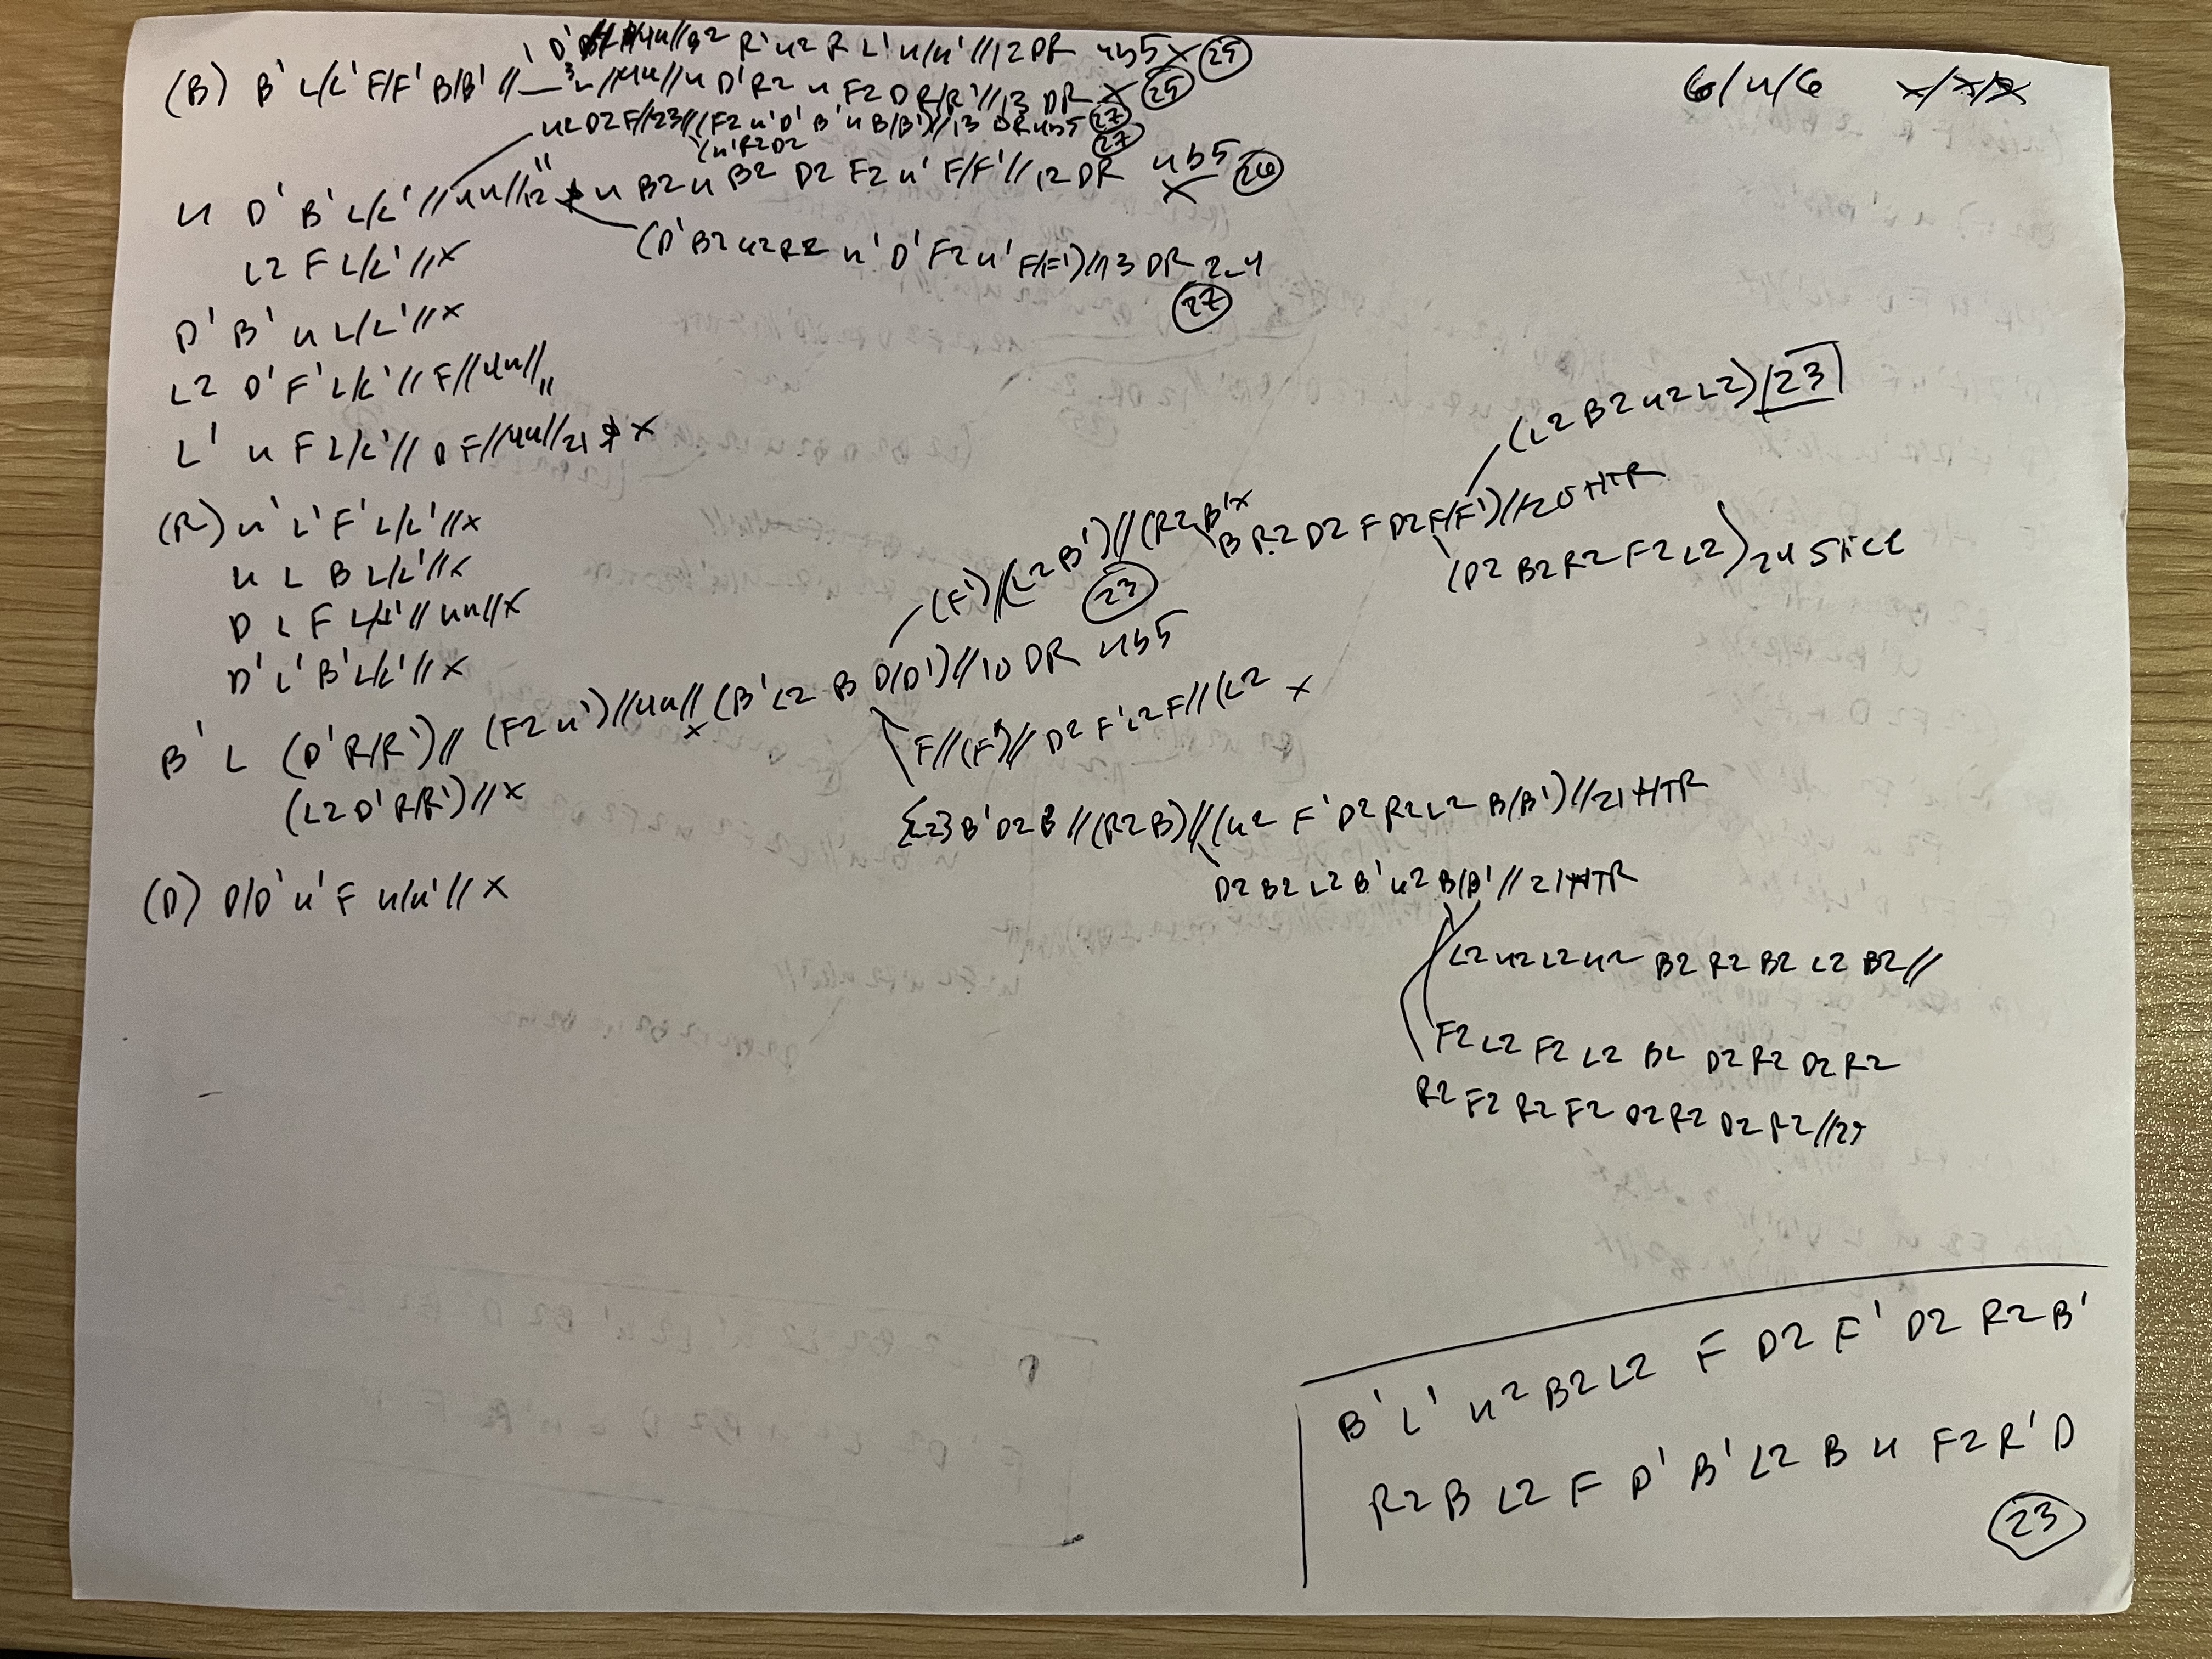 R' u2 R L' u/u' // 12 DR 4b5 x 25
(B) B' L/L' F/F' B/B' // 4u // u D' R2 u F2 D R/R' // 13 DR x 25
u2 D2 F // 23 // (F2 u' D' B' u B/B') // 13 DR 4b5 27
(u' R2 D2 27
u D' B' L/L' // 4u // 12 u B2 u B2 D2 F2 u' F/F' // 12 DR 4b5 x 26
(D' B2 u2 R2 u' D' F2 u' F/F') // 13 DR 2-4
27
L2 F L/L' // x
D' B' u L/L' // x
L2 D' F' L/L' // F // 4u // "
L' u F L/L' // D F // 4u // 21 x
(R) u' L' F' L/L' // x
u L B L/L' // x
D L F L/L' // 4u // x
D' L' B' L/L' // x
B' L (D' R/R') // (F2 u') // 4u // x (B' L2 B D/D') // 10 DR 4b5
(L2 D' R/R') // x
(F') // (L2 B') // (R2 B' x
23
B R2 D2 F D2 F/F') // 20 HTR
(L2 B2 u2 L2) 23
(D2 B2 R2 F2 L2) 24 slice
F // (F') // D2 F' L2 F // (L2 x
23 B' D2 B // (R2 B) // (u2 F' D2 R2 L2 B/B') // 21 HTR
D2 B2 L2 B' u2 B/B' // 21 HTR
L2 u2 L2 u2 B2 R2 B2 L2 B2 //
F2 L2 F2 L2 B2 D2 R2 D2 R2
R2 F2 R2 F2 D2 R2 D2 R2 // 27
(D) D/D' u' F u/u' // x
6/4/6 x/x/x
B' L' u2 B2 L2 F D2 F' D2 R2 B'
R2 B L2 F D' B' L2 B u F2 R' D
23